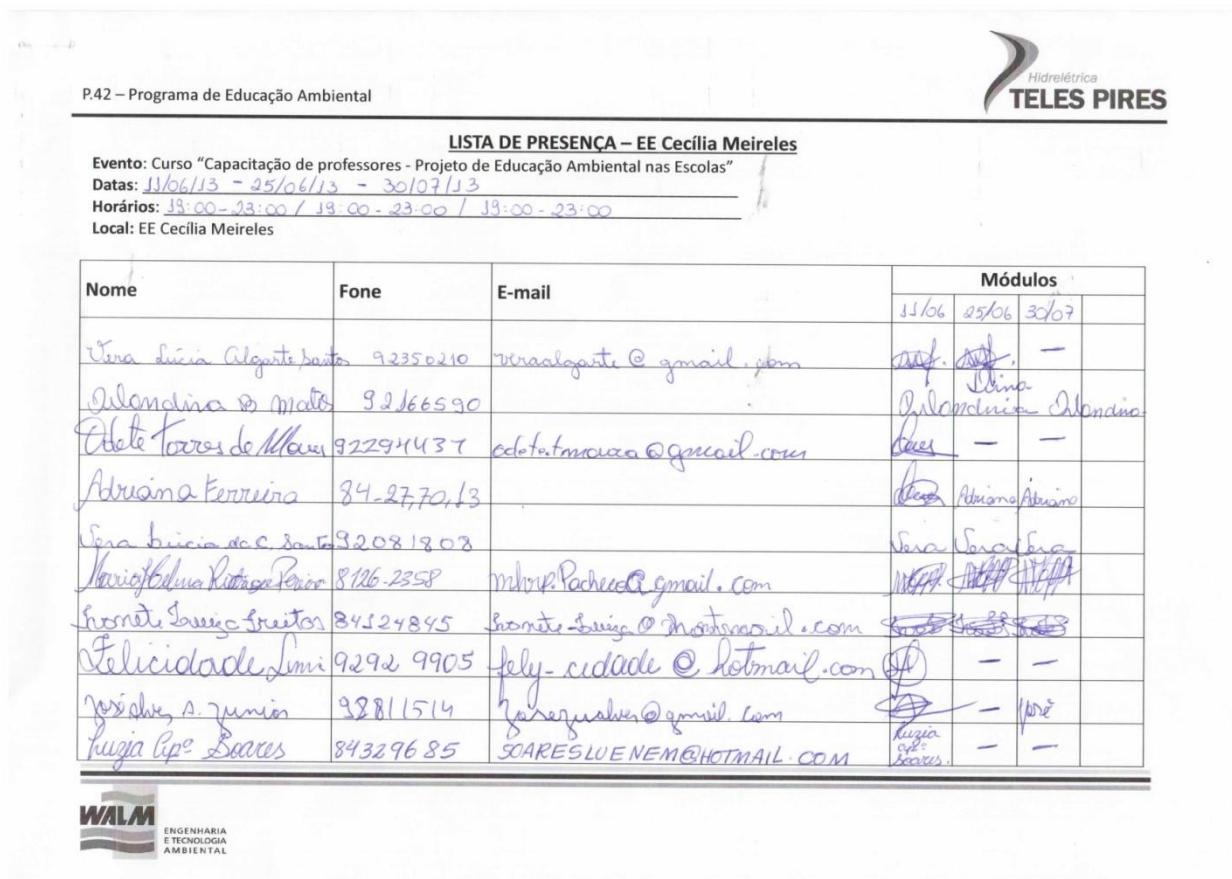 P.42 – Programa de Educação Ambiental
Hidrelétrica
TELES PIRES
LISTA DE PRESENÇA – EE Cecília Meireles
Evento: Curso “Capacitação de professores - Projeto de Educação Ambiental nas Escolas”
Datas: 11/06/13 - 25/06/13 - 30/07/13
Horários: 19:00-23:00 / 19:00-23:00 / 19:00-23:00
Local: EE Cecília Meireles
Nome Fone E-mail Módulos
11/06 25/06 30/07
Vera Lúcia Algarte Santos 92350210 veraalgarte@gmail.com —
Matos 92166590
Odete Torres de 92294437 — —
Adriana Ferreira 84-27,70,13 Adriana Adriana
Vera Lucia da C. Santos 92081808 Vera Vera Vera
Maria Helena 8126-2358 mhrp.Pacheco@gmail.com
Ivonete Freitas 84124845
Felicidade 9292 9905 fely-cidade@hotmail.com — —
A. Junior 98811514 — José
Luzia Apª Soares 84329685 SOARESLUENEM@HOTMAIL.COM Luzia Apª Soares. — —
WALM
ENGENHARIA
E TECNOLOGIA
AMBIENTAL